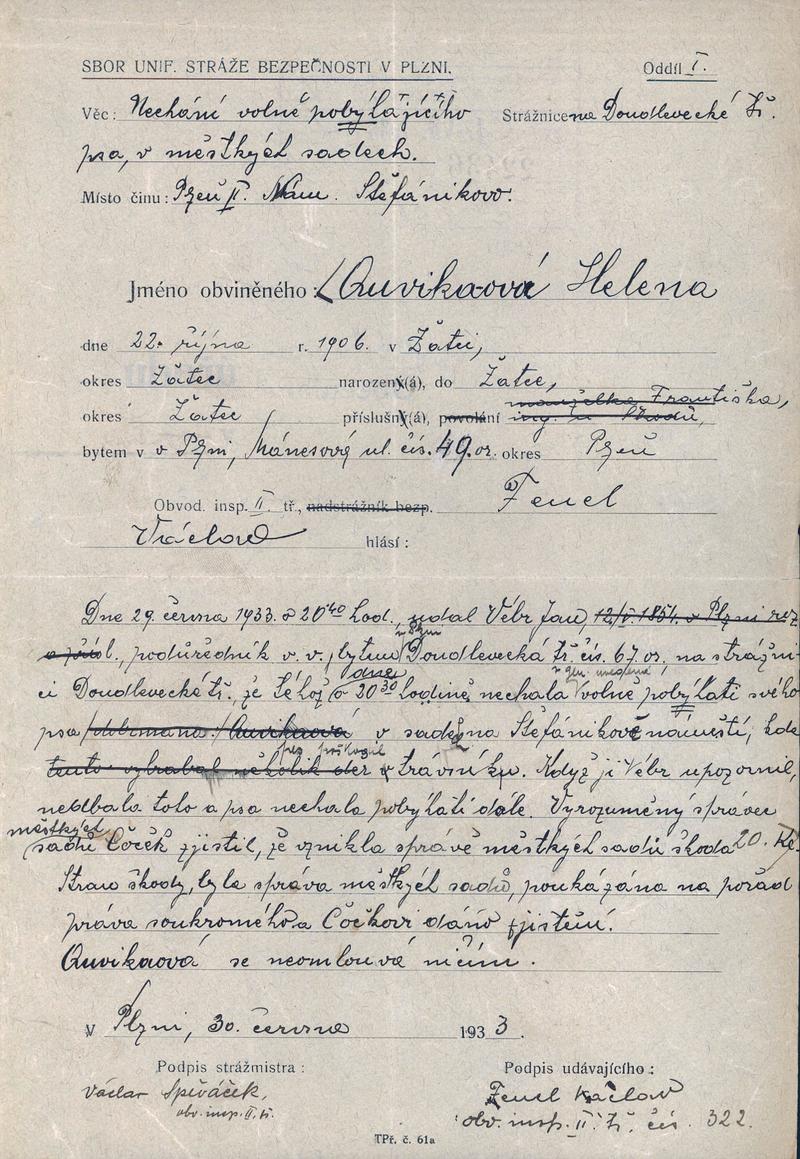 SBOR UNIF. STRÁŽE BEZPEČNOSTI V PLZNI.
Oddíl I.
Věc: Nechání volně pobýhajícího
Strážnice na Doudlevecké tř.
psa, v městkých sadech.
Místo činu: Plzeň II. Nám. Štefánikovo.
Jméno obviněného: Auvikaová Helena
dne 22. října r. 1906. v Žatci,
okres Žatec narozen(á), do Žatec,
okres Žatec příslušn(á), povolání manželka Františka,
ing. Škodů,
bytem v v Plzni, Mánesová ul. čís. 49. or. okres Plzeň
Obvod. insp. II. tř., nadstrážník bezp. Fenel
Václav hlásí:
Dne 29. června 1933 o 20⁴⁰ hod., udal Vébr Jan, 12/V. 1851. v Plzni roz.
a přísl., podúředník v. v., bytem Doudlevecká tř. čís. 67. or., na strážni-
ci Doudlevecké tř., že téhož dne o 20³⁰ hodině nechala volně pobýhati svého
psa /dobrmana./ Auvikaová v sadě na Štefánikově náměstí, kde
tento vyhrabal několik der v trávníku. Když ji Vébr upozornil,
nedbala toho a psa nechala pobýhati dále. Vyrozuměný správce
městkých
sadů Čoček zjistil, že vznikla správě městkých sadů škoda 20. Kč.
Stran škody, byla správa městkých sadů, poukázána na pořad
práva soukromého a Čočkovi dáno zjištění.
Auvikaová se neomlouvá ničím.
V Plzni, 30. června 1933.
Podpis strážmistra:
Podpis udávajícího:
Václav Spěváček,
obv. insp. II. tř.
Fenel Václav
obv. insp. II. tř. čís. 322.
TPř. č. 61a